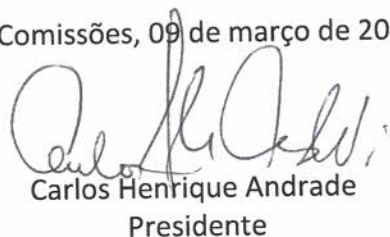 Comissões, 09 de março de 20
Carlos Henrique Andrade
Presidente